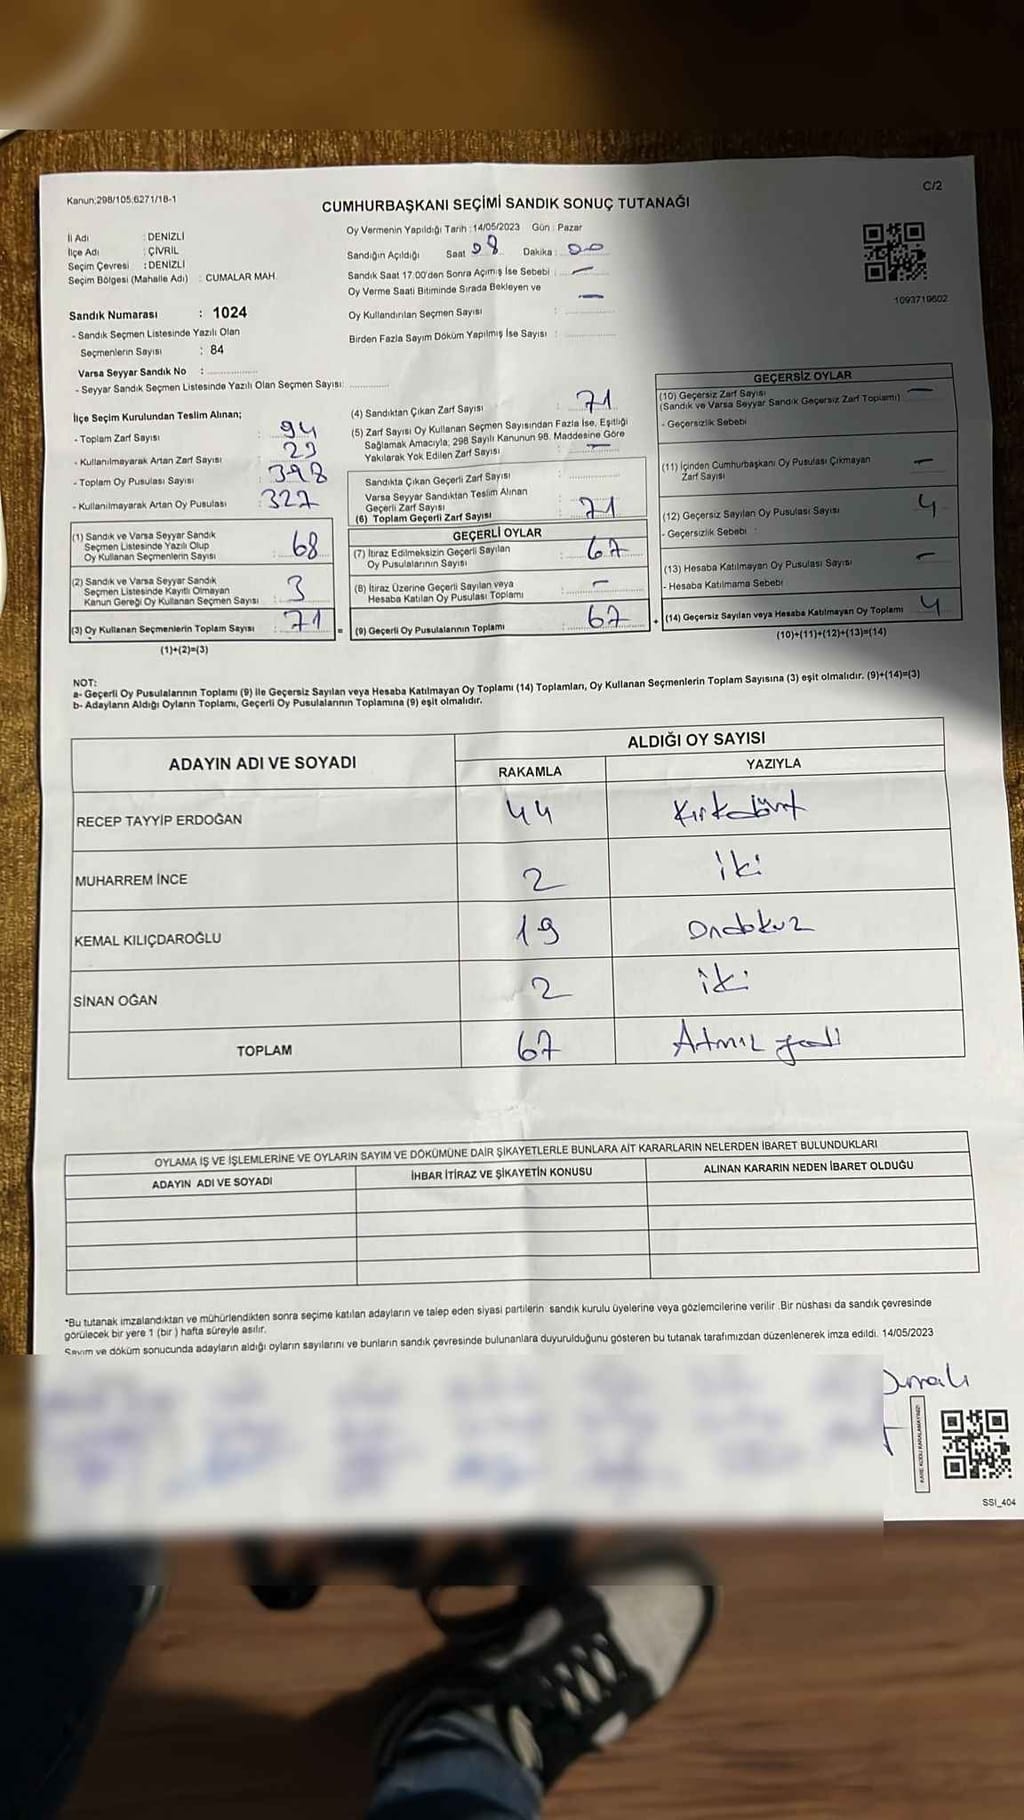 Kanun;298/105;6271/18-1
C/2
CUMHURBAŞKANI SEÇİMİ SANDIK SONUÇ TUTANAĞI
İl Adı : DENİZLİ
İlçe Adı : ÇİVRİL
Seçim Çevresi : DENİZLİ
Seçim Bölgesi (Mahalle Adı) : CUMALAR MAH.
Oy Vermenin Yapıldığı Tarih : 14/05/2023 Gün : Pazar
Sandığın Açıldığı Saat 08 Dakika : 00
Sandık Saat 17:00'den Sonra Açımış İse Sebebi : —
Oy Verme Saati Bitiminde Sırada Bekleyen ve
Oy Kullandırılan Seçmen Sayısı : —
Birden Fazla Sayım Döküm Yapılmış İse Sayısı :
1093719602
Sandık Numarası : 1024
- Sandık Seçmen Listesinde Yazılı Olan
Seçmenlerin Sayısı : 84
Varsa Seyyar Sandık No :
- Seyyar Sandık Seçmen Listesinde Yazılı Olan Seçmen Sayısı:
İlçe Seçim Kurulundan Teslim Alınan;
- Toplam Zarf Sayısı : 94
- Kullanılmayarak Artan Zarf Sayısı : 23
- Toplam Oy Pusulası Sayısı : 398
- Kullanılmayarak Artan Oy Pusulası : 327
(1) Sandık ve Varsa Seyyar Sandık
Seçmen Listesinde Yazılı Olup
Oy Kullanan Seçmenlerin Sayısı : 68
(2) Sandık ve Varsa Seyyar Sandık
Seçmen Listesinde Kayıtlı Olmayan
Kanun Gereği Oy Kullanan Seçmen Sayısı : 3
(3) Oy Kullanan Seçmenlerin Toplam Sayısı : 71
(1)+(2)=(3)
(4) Sandıktan Çıkan Zarf Sayısı : 71
(5) Zarf Sayısı Oy Kullanan Seçmen Sayısından Fazla İse, Eşitliği
Sağlamak Amacıyla, 298 Sayılı Kanunun 98. Maddesine Göre
Yakılarak Yok Edilen Zarf Sayısı : —
Sandıkta Çıkan Geçerli Zarf Sayısı :
Varsa Seyyar Sandıktan Teslim Alınan
Geçerli Zarf Sayısı
(6) Toplam Geçerli Zarf Sayısı : 71
GEÇERLİ OYLAR
(7) İtiraz Edilmeksizin Geçerli Sayılan
Oy Pusulalarının Sayısı : 67
(8) İtiraz Üzerine Geçerli Sayılan veya
Hesaba Katılan Oy Pusulası Toplamı : —
= (9) Geçerli Oy Pusulalarının Toplamı : 67
GEÇERSİZ OYLAR
(10) Geçersiz Zarf Sayısı —
(Sandık ve Varsa Seyyar Sandık Geçersiz Zarf Toplamı)
- Geçersizlik Sebebi
(11) İçinden Cumhurbaşkanı Oy Pusulası Çıkmayan
Zarf Sayısı —
(12) Geçersiz Sayılan Oy Pusulası Sayısı 4
- Geçersizlik Sebebi :
(13) Hesaba Katılmayan Oy Pusulası Sayısı —
- Hesaba Katılmama Sebebi
+ (14) Geçersiz Sayılan veya Hesaba Katılmayan Oy Toplamı 4
(10)+(11)+(12)+(13)=(14)
NOT:
a- Geçerli Oy Pusulalarının Toplamı (9) ile Geçersiz Sayılan veya Hesaba Katılmayan Oy Toplamı (14) Toplamları, Oy Kullanan Seçmenlerin Toplam Sayısına (3) eşit olmalıdır. (9)+(14)=(3)
b- Adayların Aldığı Oyların Toplamı, Geçerli Oy Pusulalarının Toplamına (9) eşit olmalıdır.
ADAYIN ADI VE SOYADI
ALDIĞI OY SAYISI
RAKAMLA YAZIYLA
RECEP TAYYİP ERDOĞAN 44 Kırkdört
MUHARREM İNCE 2 iki
KEMAL KILIÇDAROĞLU 19 Ondokuz
SİNAN OĞAN 2 iki
TOPLAM 67 Atmış yedi
OYLAMA İŞ VE İŞLEMLERİNE VE OYLARIN SAYIM VE DÖKÜMÜNE DAİR ŞİKAYETLERLE BUNLARA AİT KARARLARIN NELERDEN İBARET BULUNDUKLARI
ADAYIN ADI VE SOYADI İHBAR İTİRAZ VE ŞİKAYETİN KONUSU ALINAN KARARIN NEDEN İBARET OLDUĞU
*Bu tutanak imzalandıktan ve mühürlendikten sonra seçime katılan adayların ve talep eden siyasi partilerin sandık kurulu üyelerine veya gözlemcilerine verilir. Bir nüshası da sandık çevresinde
görülecek bir yere 1 (bir) hafta süreyle asılır.
Sayım ve döküm sonucunda adayların aldığı oyların sayılarını ve bunların sandık çevresinde bulunanlara duyurulduğunu gösteren bu tutanak tarafımızdan düzenlenerek imza edildi. 14/05/2023
KARE KODU KARALAMAYINIZ!
SSI_404